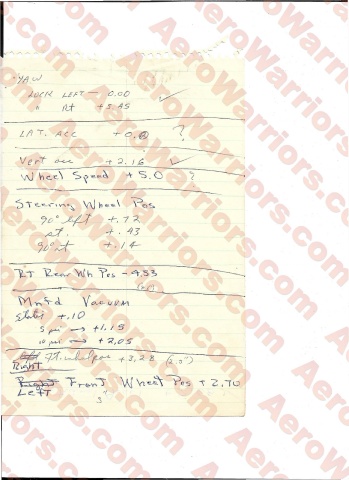 YAW
LOCK LEFT — 0.00
" Rt +5.45 ✓
LAT. ACC +0.0 ?
Vert acc +2.16 ✓
Wheel Speed +5.0 ?
Steering Wheel Pos
90° left +.72
st. +.43
90° rt +.14
Rt Rear Wh Pos -4.53
Mnfd Vacuum
static +.10
5 psi → +1.15
10 psi → +2.05
Ft. wheel pos +3.28 (2.0")
Right
Right Front Wheel Pos +2.70
LEFT 3"
AeroWarriors.com